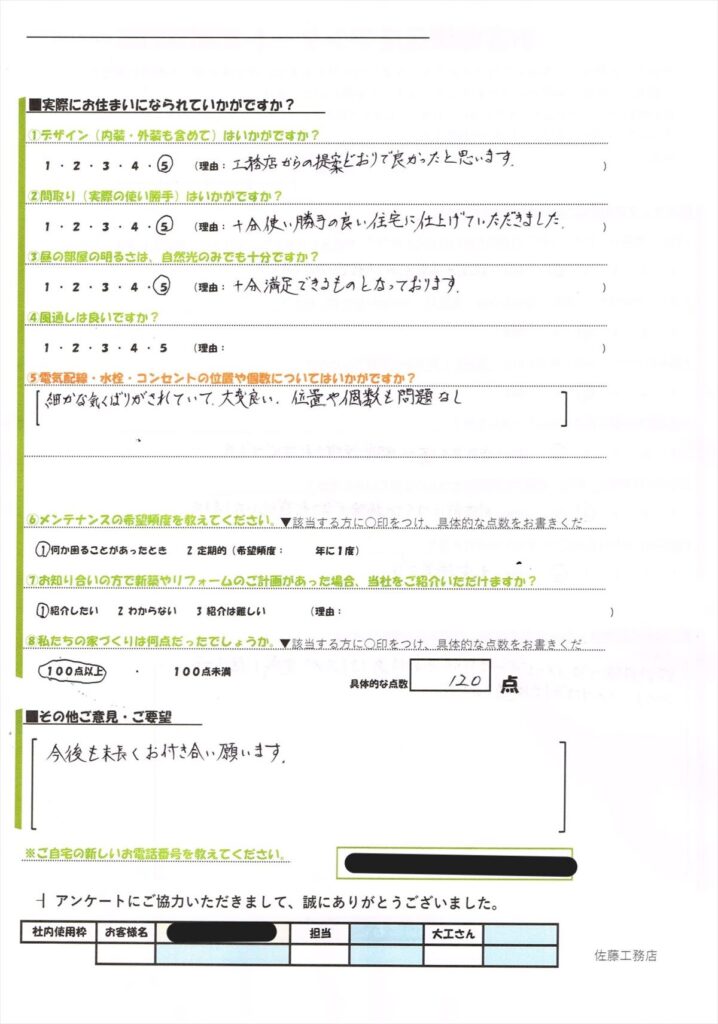 ■実際にお住まいになられていかがですか？
①デザイン（内装・外装も含めて）はいかがですか？
1・2・3・4・⑤ （理由：工務店からの提案どおりで良かったと思います。）
②間取り（実際の使い勝手）はいかがですか？
1・2・3・4・⑤ （理由：十分使い勝手の良い住宅に仕上げていただきました。）
③昼の部屋の明るさは、自然光のみでも十分ですか？
1・2・3・4・⑤ （理由：十分満足できるものとなっております。）
④風通しは良いですか？
1・2・3・4・5 （理由：　）
⑤電気配線・水栓・コンセントの位置や個数についてはいかがですか？
細かな気くばりがされていて、大変良い。位置や個数も問題なし
⑥メンテナンスの希望頻度を教えてください。▼該当する方に○印をつけ、具体的な点数をお書きくだ
①何か困ることがあったとき 2 定期的（希望頻度：　年に1度）
⑦お知り合いの方で新築やリフォームのご計画があった場合、当社をご紹介いただけますか？
①紹介したい 2 わからない 3 紹介は難しい （理由：　）
⑧私たちの家づくりは何点だったでしょうか。▼該当する方に○印をつけ、具体的な点数をお書きくだ
100点以上 ・ 100点未満 具体的な点数 120 点
■その他ご意見・ご要望
今後も末長くお付き合い願います。
※ご自宅の新しいお電話番号を教えてください。
アンケートにご協力いただきまして、誠にありがとうございました。
社内使用枠 お客様名 担当 大工さん
佐藤工務店